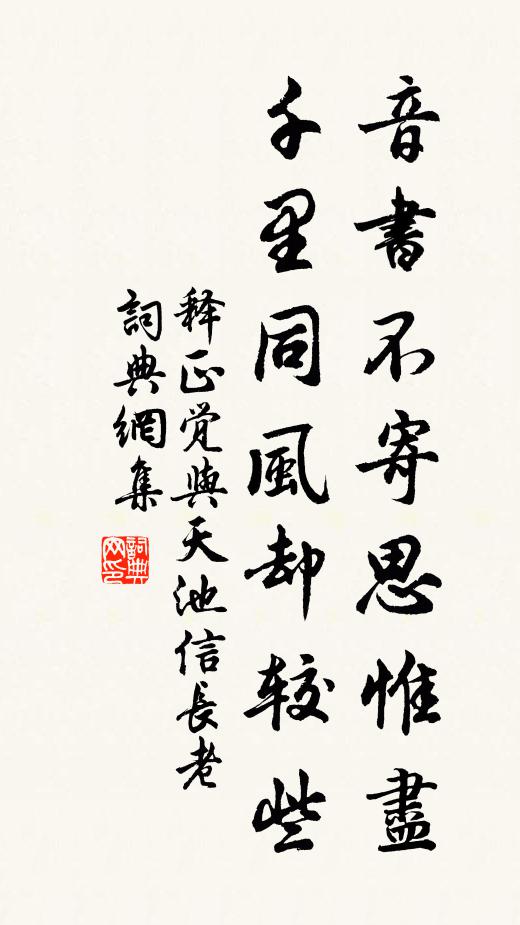 音書不寄思惟盡
千里同風却较些
释正覚與天池信長老
詞典網集
詞典
网印